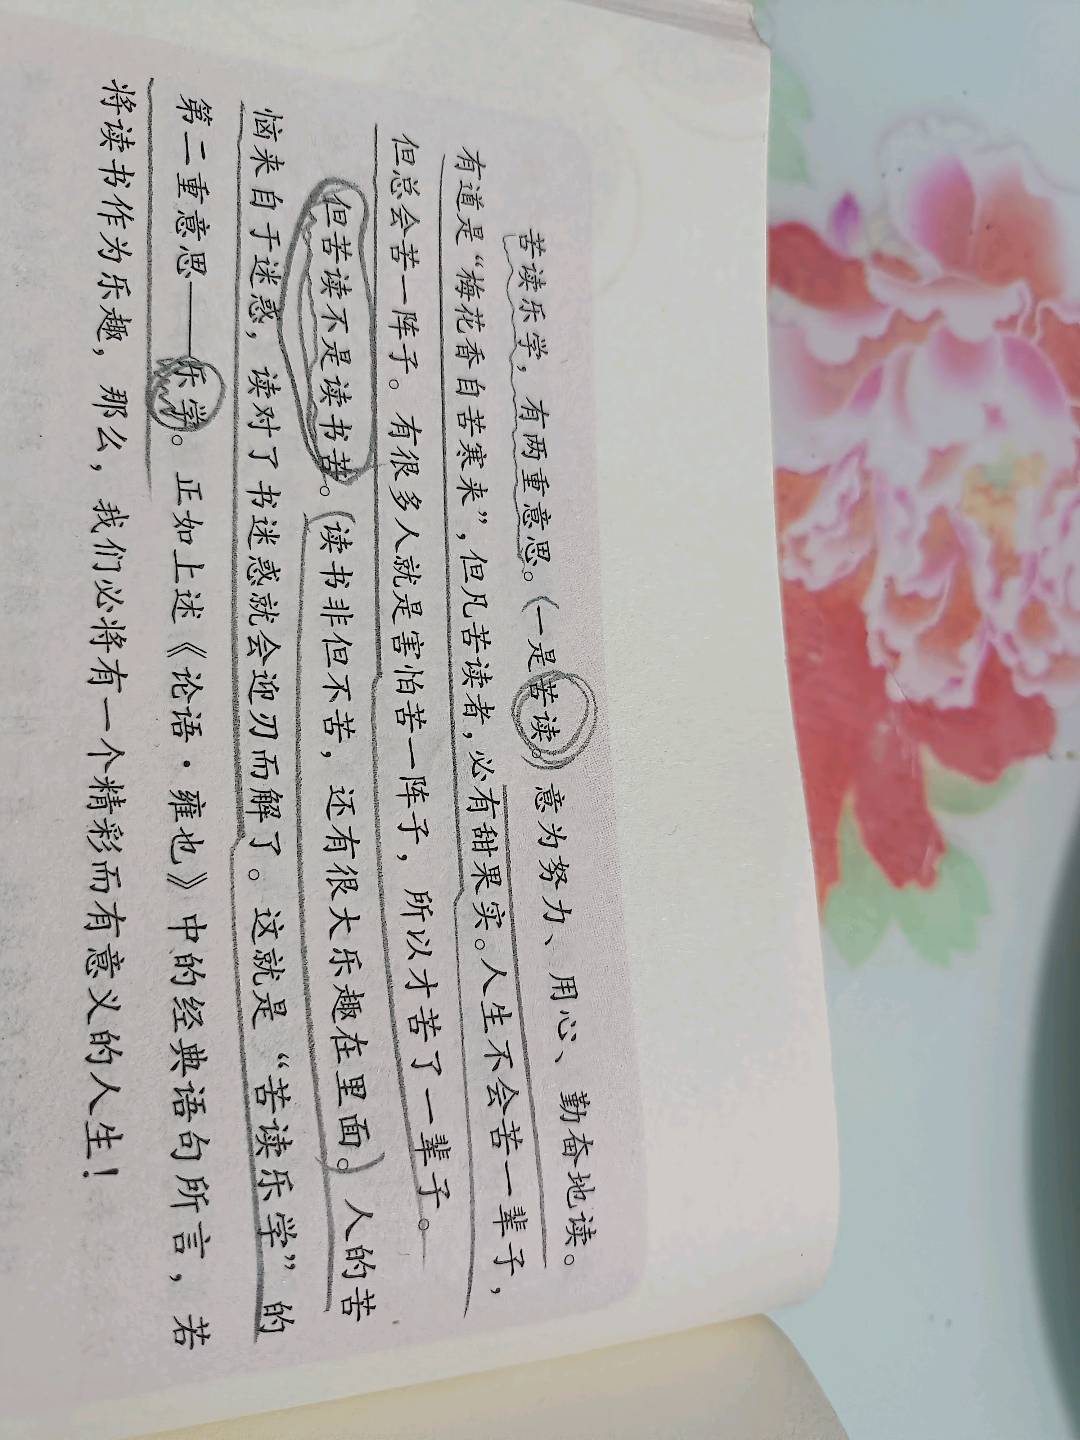 苦读乐学，有两重意思。（一是苦读。）意为努力、用心、勤奋地读。
有道是“梅花香自苦寒来”，但凡苦读者，必有甜果实。人生不会苦一辈子，
但总会苦一阵子。有很多人就是害怕苦一阵子，所以才苦了一辈子。
但苦读不是读书苦。（读书非但不苦，还有很大乐趣在里面。）人的苦
恼来自于迷惑，读对了书迷惑就会迎刃而解了。这就是“苦读乐学”的
第二重意思——乐学。正如上述《论语·雍也》中的经典语句所言，若
将读书作为乐趣，那么，我们必将有一个精彩而有意义的人生！